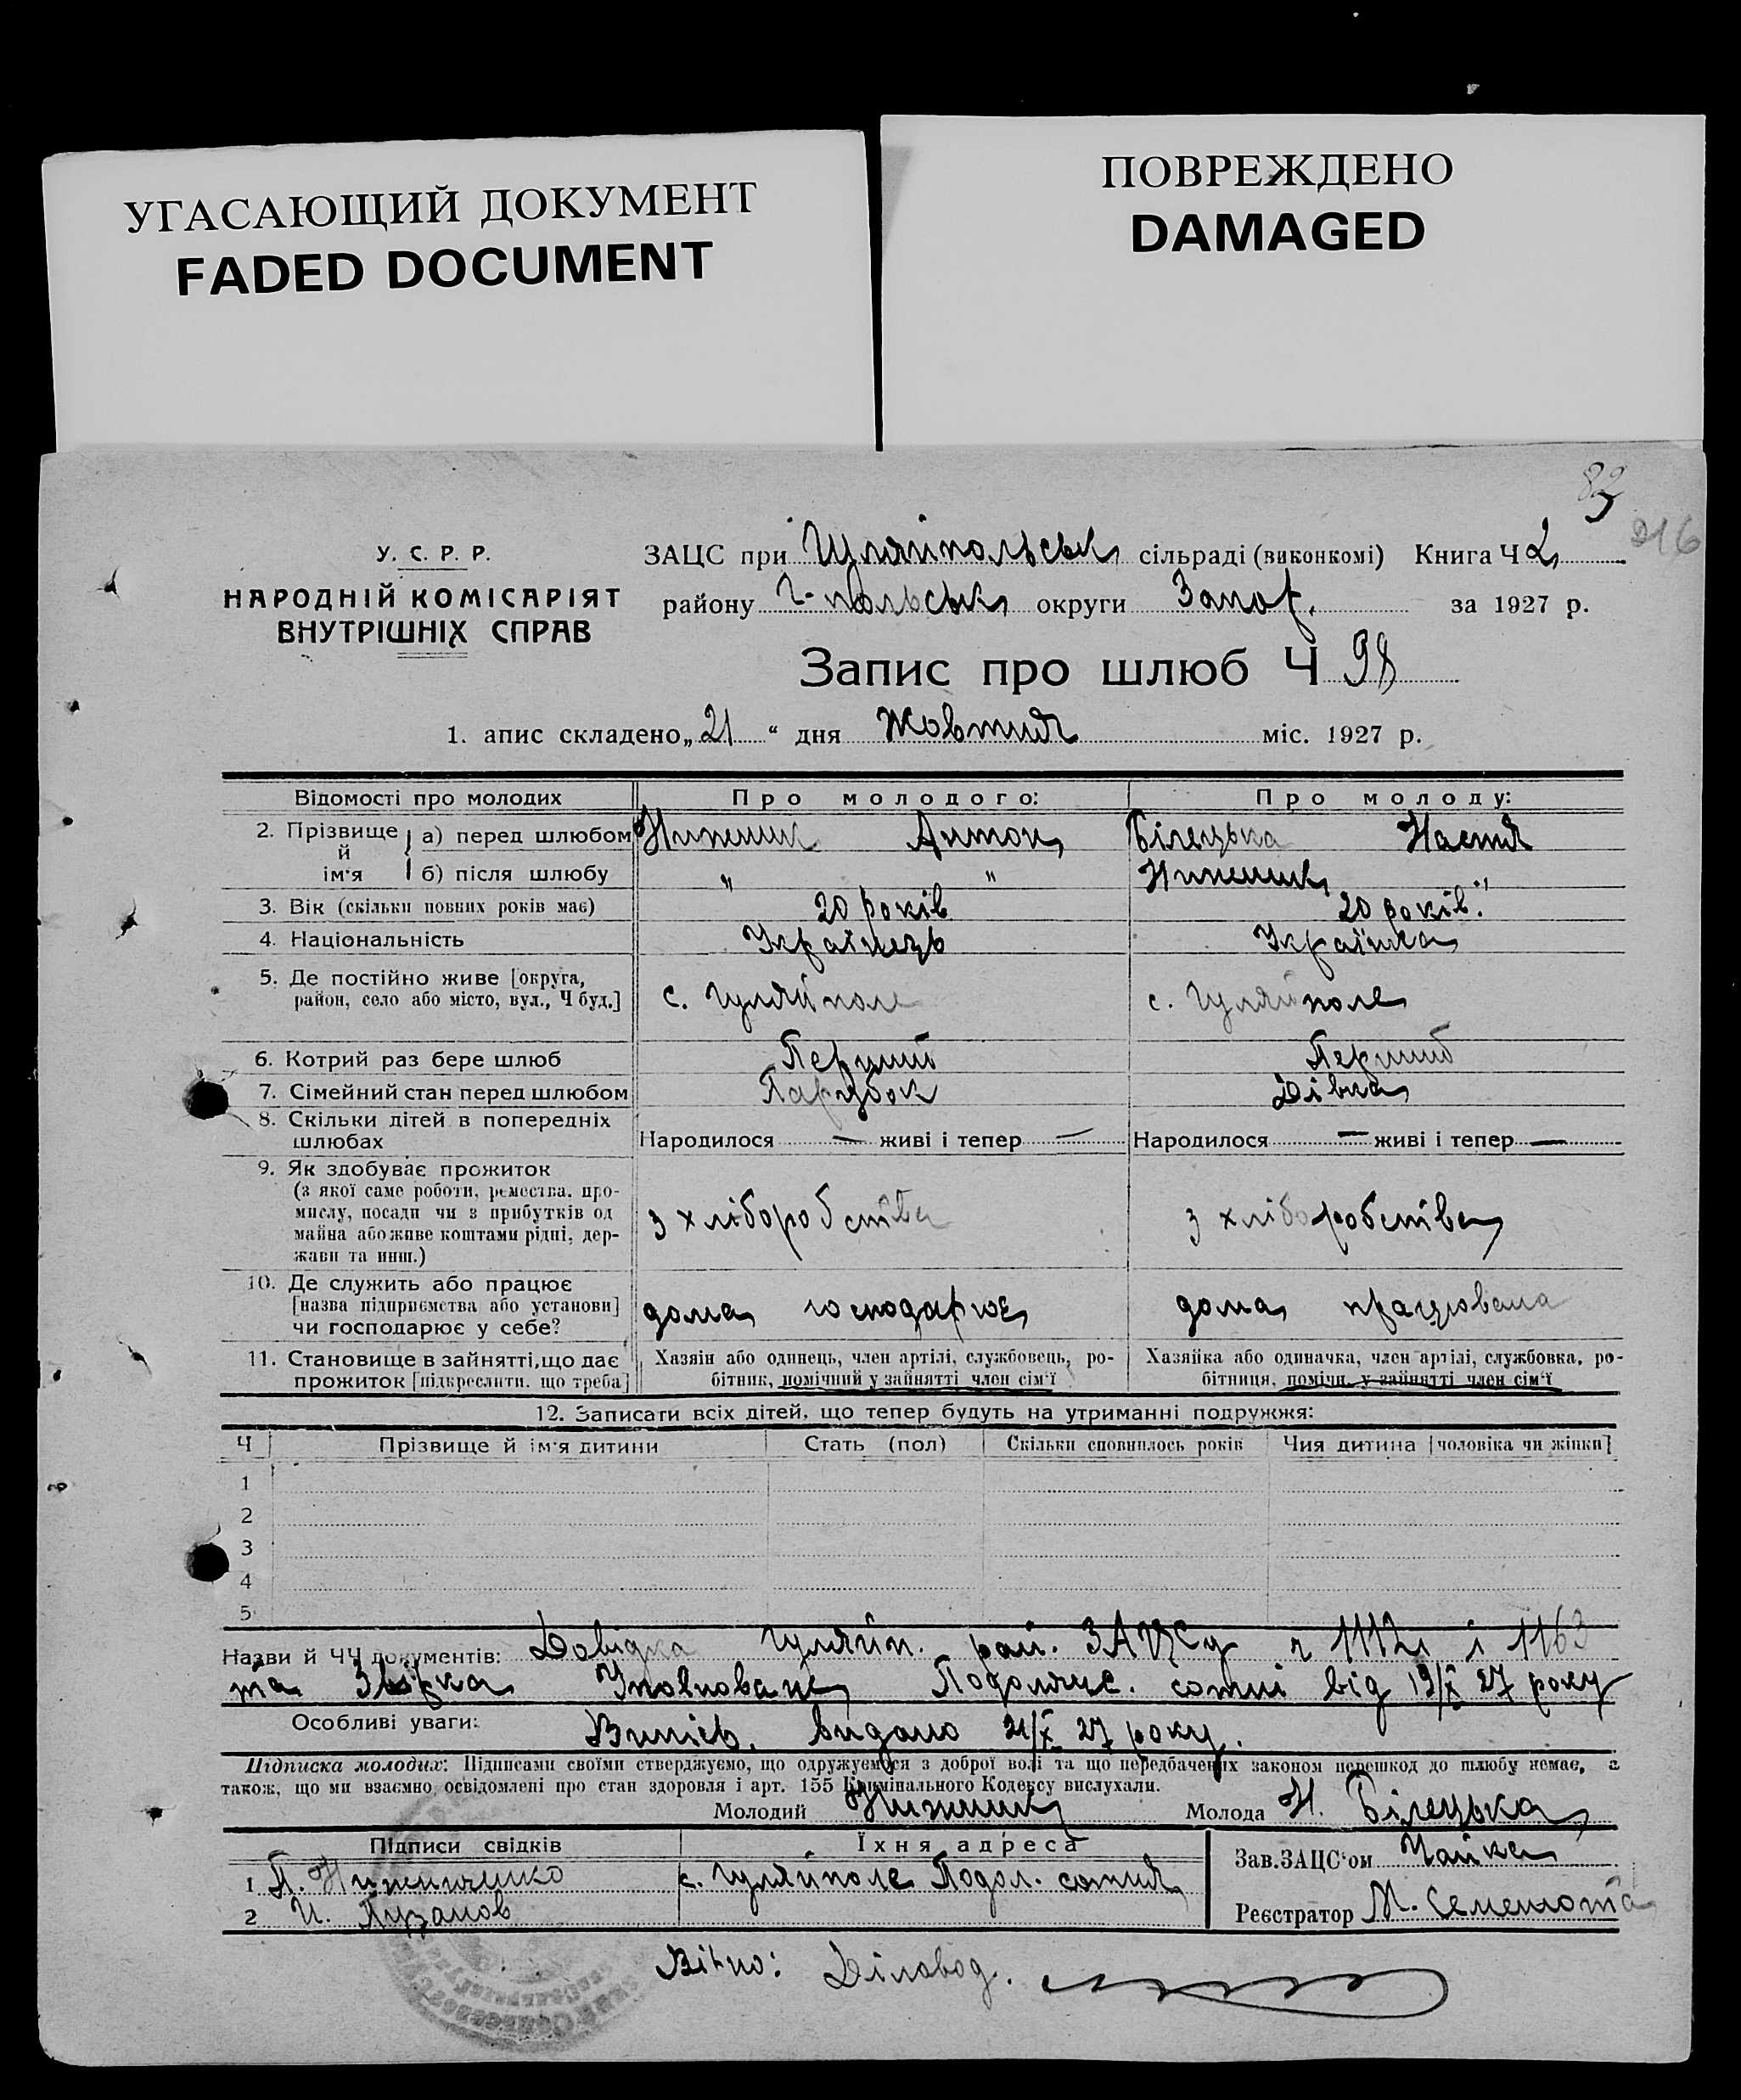 УГАСАЮЩИЙ ДОКУМЕНТ
FADED DOCUMENT
ПОВРЕЖДЕНО
DAMAGED
216
У. С. Р. Р.
НАРОДНІЙ КОМІСАРІЯТ
ВНУТРІШНІХ СПРАВ
ЗАЦС при Гуляйпольськ сільраді (виконкомі) Книга Ч 2
району Г-польськ округи Запор. за 1927 р.
Запис про шлюб Ч 98
1. апис складено „21“ дня Жовтня міс. 1927 р.
Відомості про молодих Про молодого: Про молоду:
2. Прізвище й ім'я а) перед шлюбом Нижник Антон Білецька Настя
б) після шлюбу " " Нижник "
3. Вік (скільки повних років має) 20 років 20 років.
4. Національність Українець Українка
5. Де постійно живе [округа,
район, село або місто, вул., Ч буд.] с. Гуляйполе с. Гуляйполе
6. Котрий раз бере шлюб Перший Перший
7. Сімейний стан перед шлюбом Парубок Дівка
8. Скільки дітей в попередніх
шлюбах Народилося — живі і тепер — Народилося — живі і тепер —
9. Як здобуває прожиток
(з якої саме роботи, ремества, про-
мислу, посади чи з прибутків од
майна або живе коштами рідні, дер-
жави та инш.) з хліборобства з хліборобства
10. Де служить або працює
[назва підприємства або установи]
чи господарює у себе? дома господарює дома працювала
11. Становище в зайнятті, що дає
прожиток [підкреслити, що треба]
Хазяін або одинець, член артілі, службовець, ро-
бітник, помічний у зайнятті член сім'ї
Хазяйка або одиначка, член артілі, службовка, ро-
бітниця, помічн. у зайнятті член сім'ї
12. Записати всіх дітей, що тепер будуть на утриманні подружжя:
Ч Прізвище й ім'я дитини Стать (пол) Скільки сповнилось років Чия дитина [чоловіка чи жінки]
1
2
3
4
5
Назви й ЧЧ документів: Довідка Гуляйп. рай. ЗАЦСу і 1163
та Уповноважен Подолянс. сотні від 19/X 27 року
Особливі уваги: Випись видано 21/X 27 року.
Підписка молодих: Підписами своїми стверджуємо, що одружуємося з доброї волі та що передбачених законом перешкод до шлюбу немає, а
також, що ми взаємно освідомлені про стан здоровля і арт. 155 Кримінального Кодексу вислухали.
Молодий Нижник Молода Н. Білецька
Підписи свідків Їхня адреса
1 П. Нижниченко с. Гуляйполе Подол. сотня
2 И. Пузанов
Зав. ЗАЦС'ом Чайка
Реєстратор М. Семенота
Вірно: Діловод.